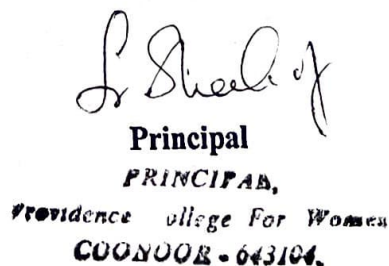 Principal
PRINCIPAL,
Providence ollege For Women
COONOOR - 643104.